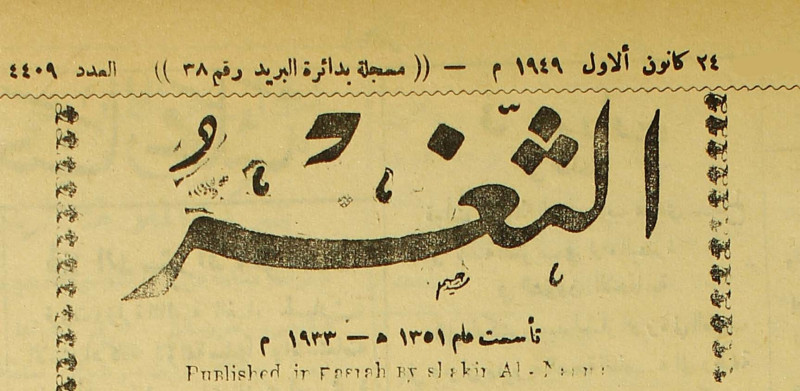 ٢٤ كانون ألاول ١٩٤٩ م — (( مسجلة بدائرة البريد رقم ٣٨ )) العدد ٤٤٠٩
الثغر
رحيم
تأسست عام ١٣٥١ ه — ١٩٣٣ م
Published in Basrah By Shakir Al-